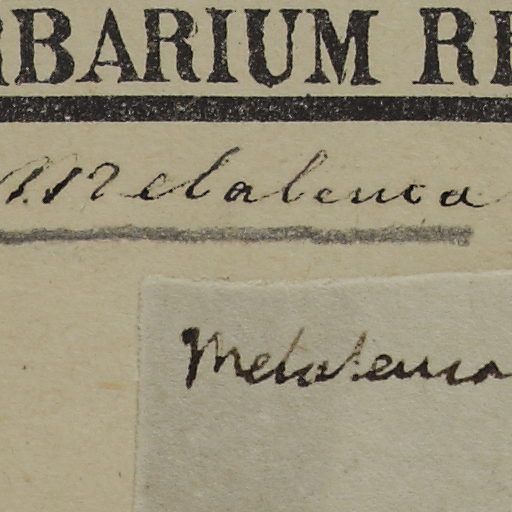 RBARIUM RE
Melaleuca
Melaleuca